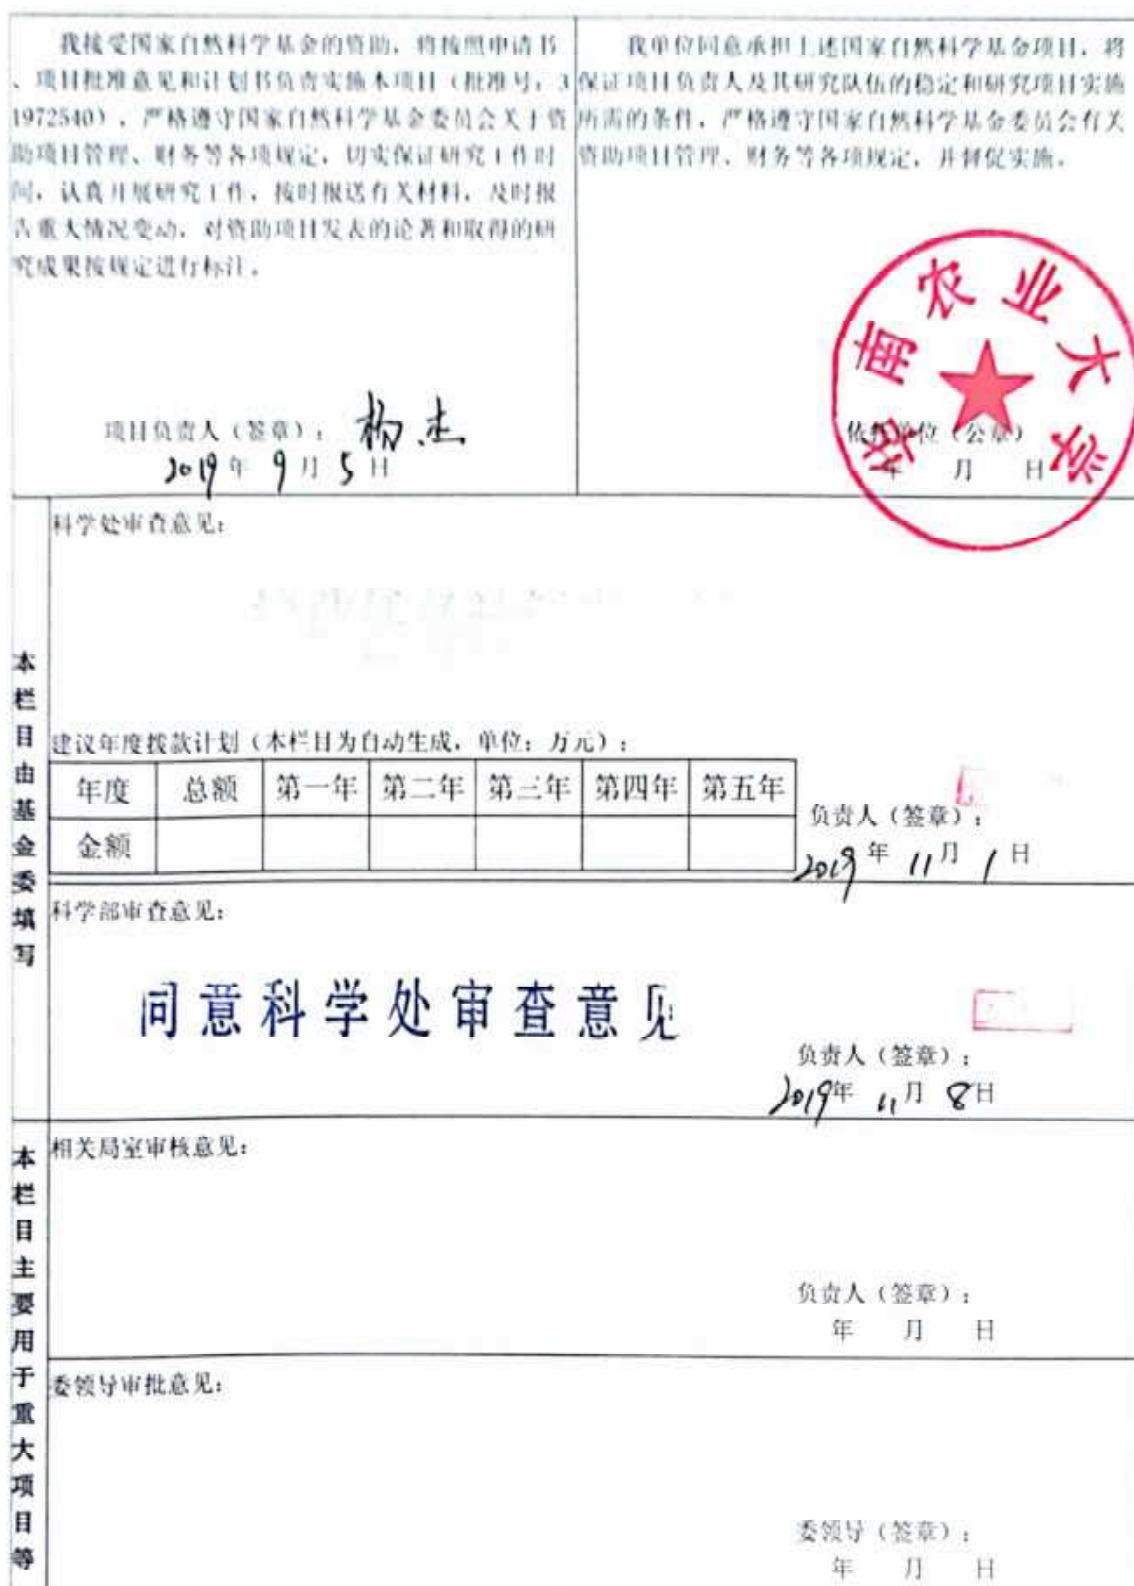 我接受国家自然科学基金的资助，将按照申请书
、项目批准意见和计划书负责实施本项目（批准号：3
1972540），严格遵守国家自然科学基金委员会关于资
助项目管理、财务等各项规定，切实保证研究工作时
间，认真开展研究工作，按时报送有关材料，及时报
告重大情况变动，对资助项目发表的论著和取得的研
究成果按规定进行标注。
项目负责人（签章）：杨杰
2019年 9月 5日
我单位同意承担上述国家自然科学基金项目，将
保证项目负责人及其研究队伍的稳定和研究项目实施
所需的条件，严格遵守国家自然科学基金委员会有关
资助项目管理、财务等各项规定，并督促实施。
华南农业大学
依托单位（公章）
年 月 日
本栏目由基金委填写
科学处审查意见：
建议年度拨款计划（本栏目为自动生成，单位：万元）：
年度 总额 第一年 第二年 第三年 第四年 第五年
金额
负责人（签章）：
2019年 11月 1日
科学部审查意见：
同意科学处审查意见
负责人（签章）：
2019年 11月 8日
本栏目主要用于重大项目等
相关局室审核意见：
负责人（签章）：
年 月 日
委领导审批意见：
委领导（签章）：
年 月 日